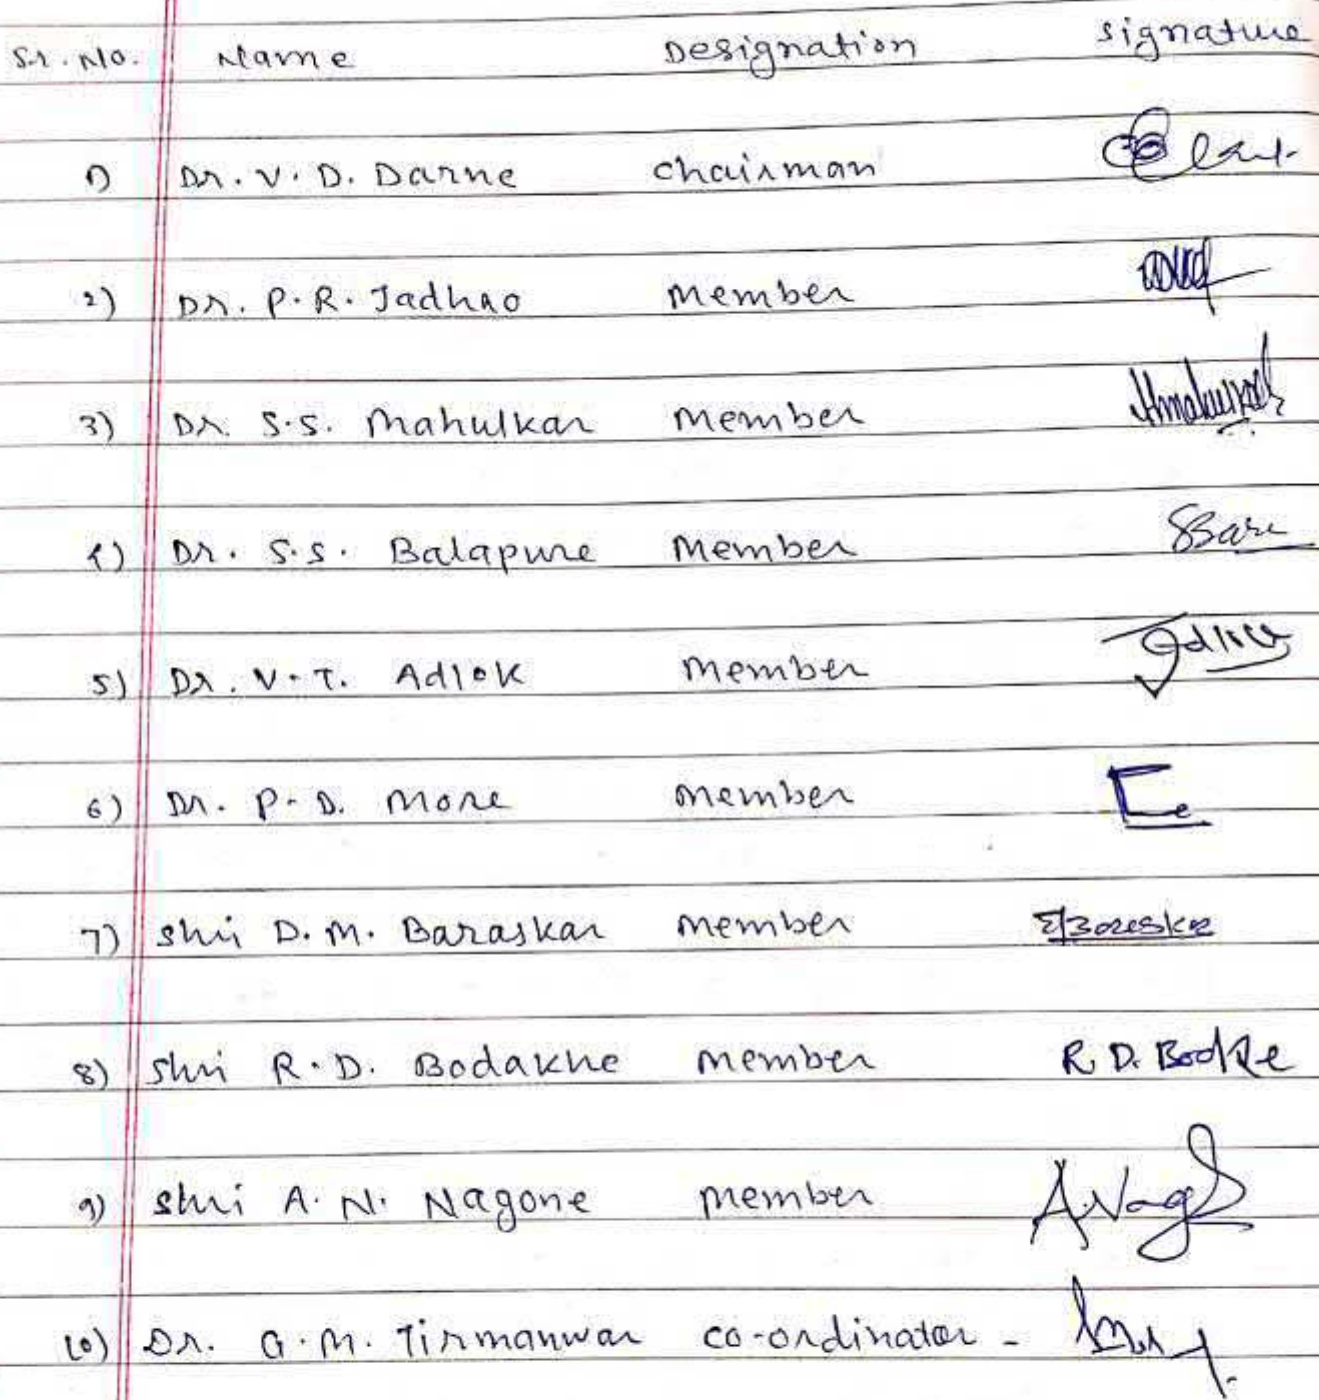 Sr. No. Name Designation signature
1) Dr. V. D. Darne chairman
2) Dr. P. R. Jadhao Member
3) Dr. S.S. Mahulkar Member
4) Dr. S.S. Balapure Member
5) Dr. V. T. Adlok Member
6) Dr. P. D. More Member
7) Shri D. M. Baraskar Member
8) Shri R. D. Bodakhe Member R. D. Bodkhe
9) Shri A. N. Nagone Member
10) Dr. G. M. Tirmanwar co-ordinator -